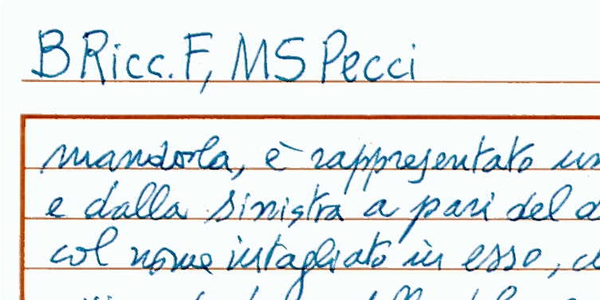 B Ricc. F, MS Pecci
mandorla, è rappresentato un
e dalla sinistra a pari del
col nome intagliato in esso,